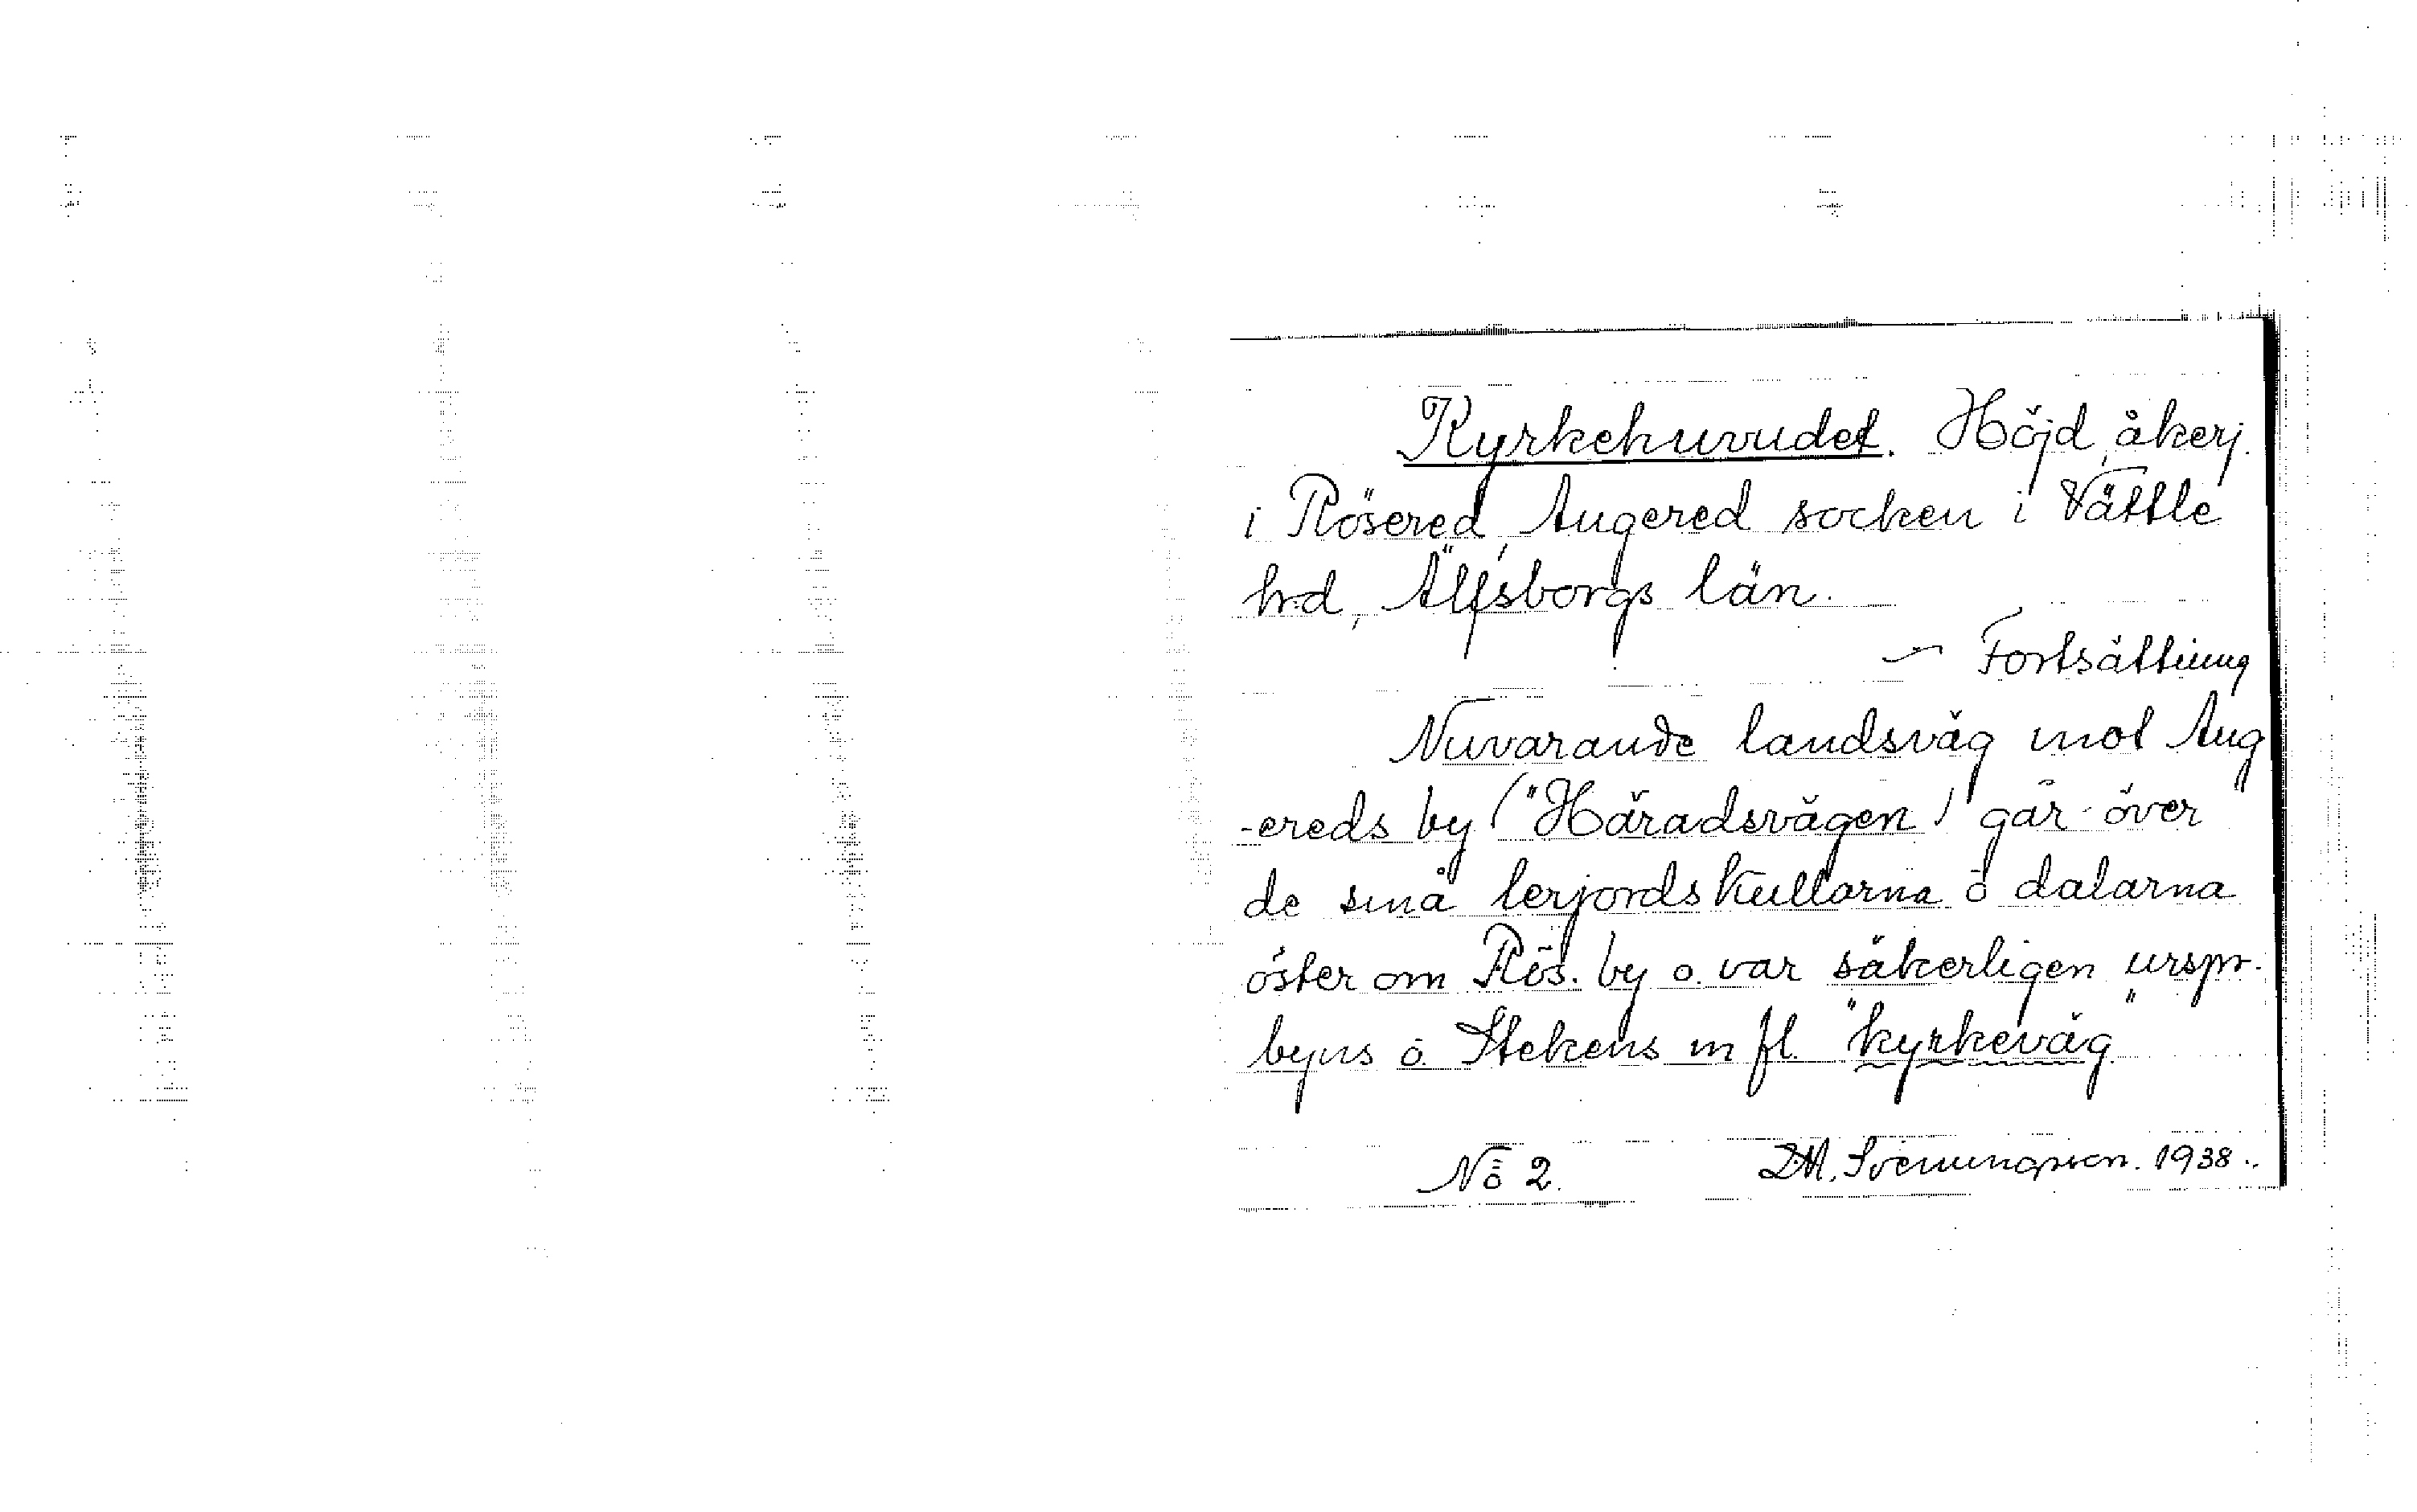 Kyrkehuvudet. Höjd, åkerj.
i Rösered, Angered socken i Vättle
hrd, Älfsborgs län.
— Fortsättning
Nuvarande landsväg mot Ang
-ereds by ("Häradsvägen") går över
de små lerjordskullarna o dalarna
öster om Rös. by o. var säkerligen urspr.
byns o. Stekens m fl. "kyrkeväg"
No 2. D.M. Svenungsson. 1938.